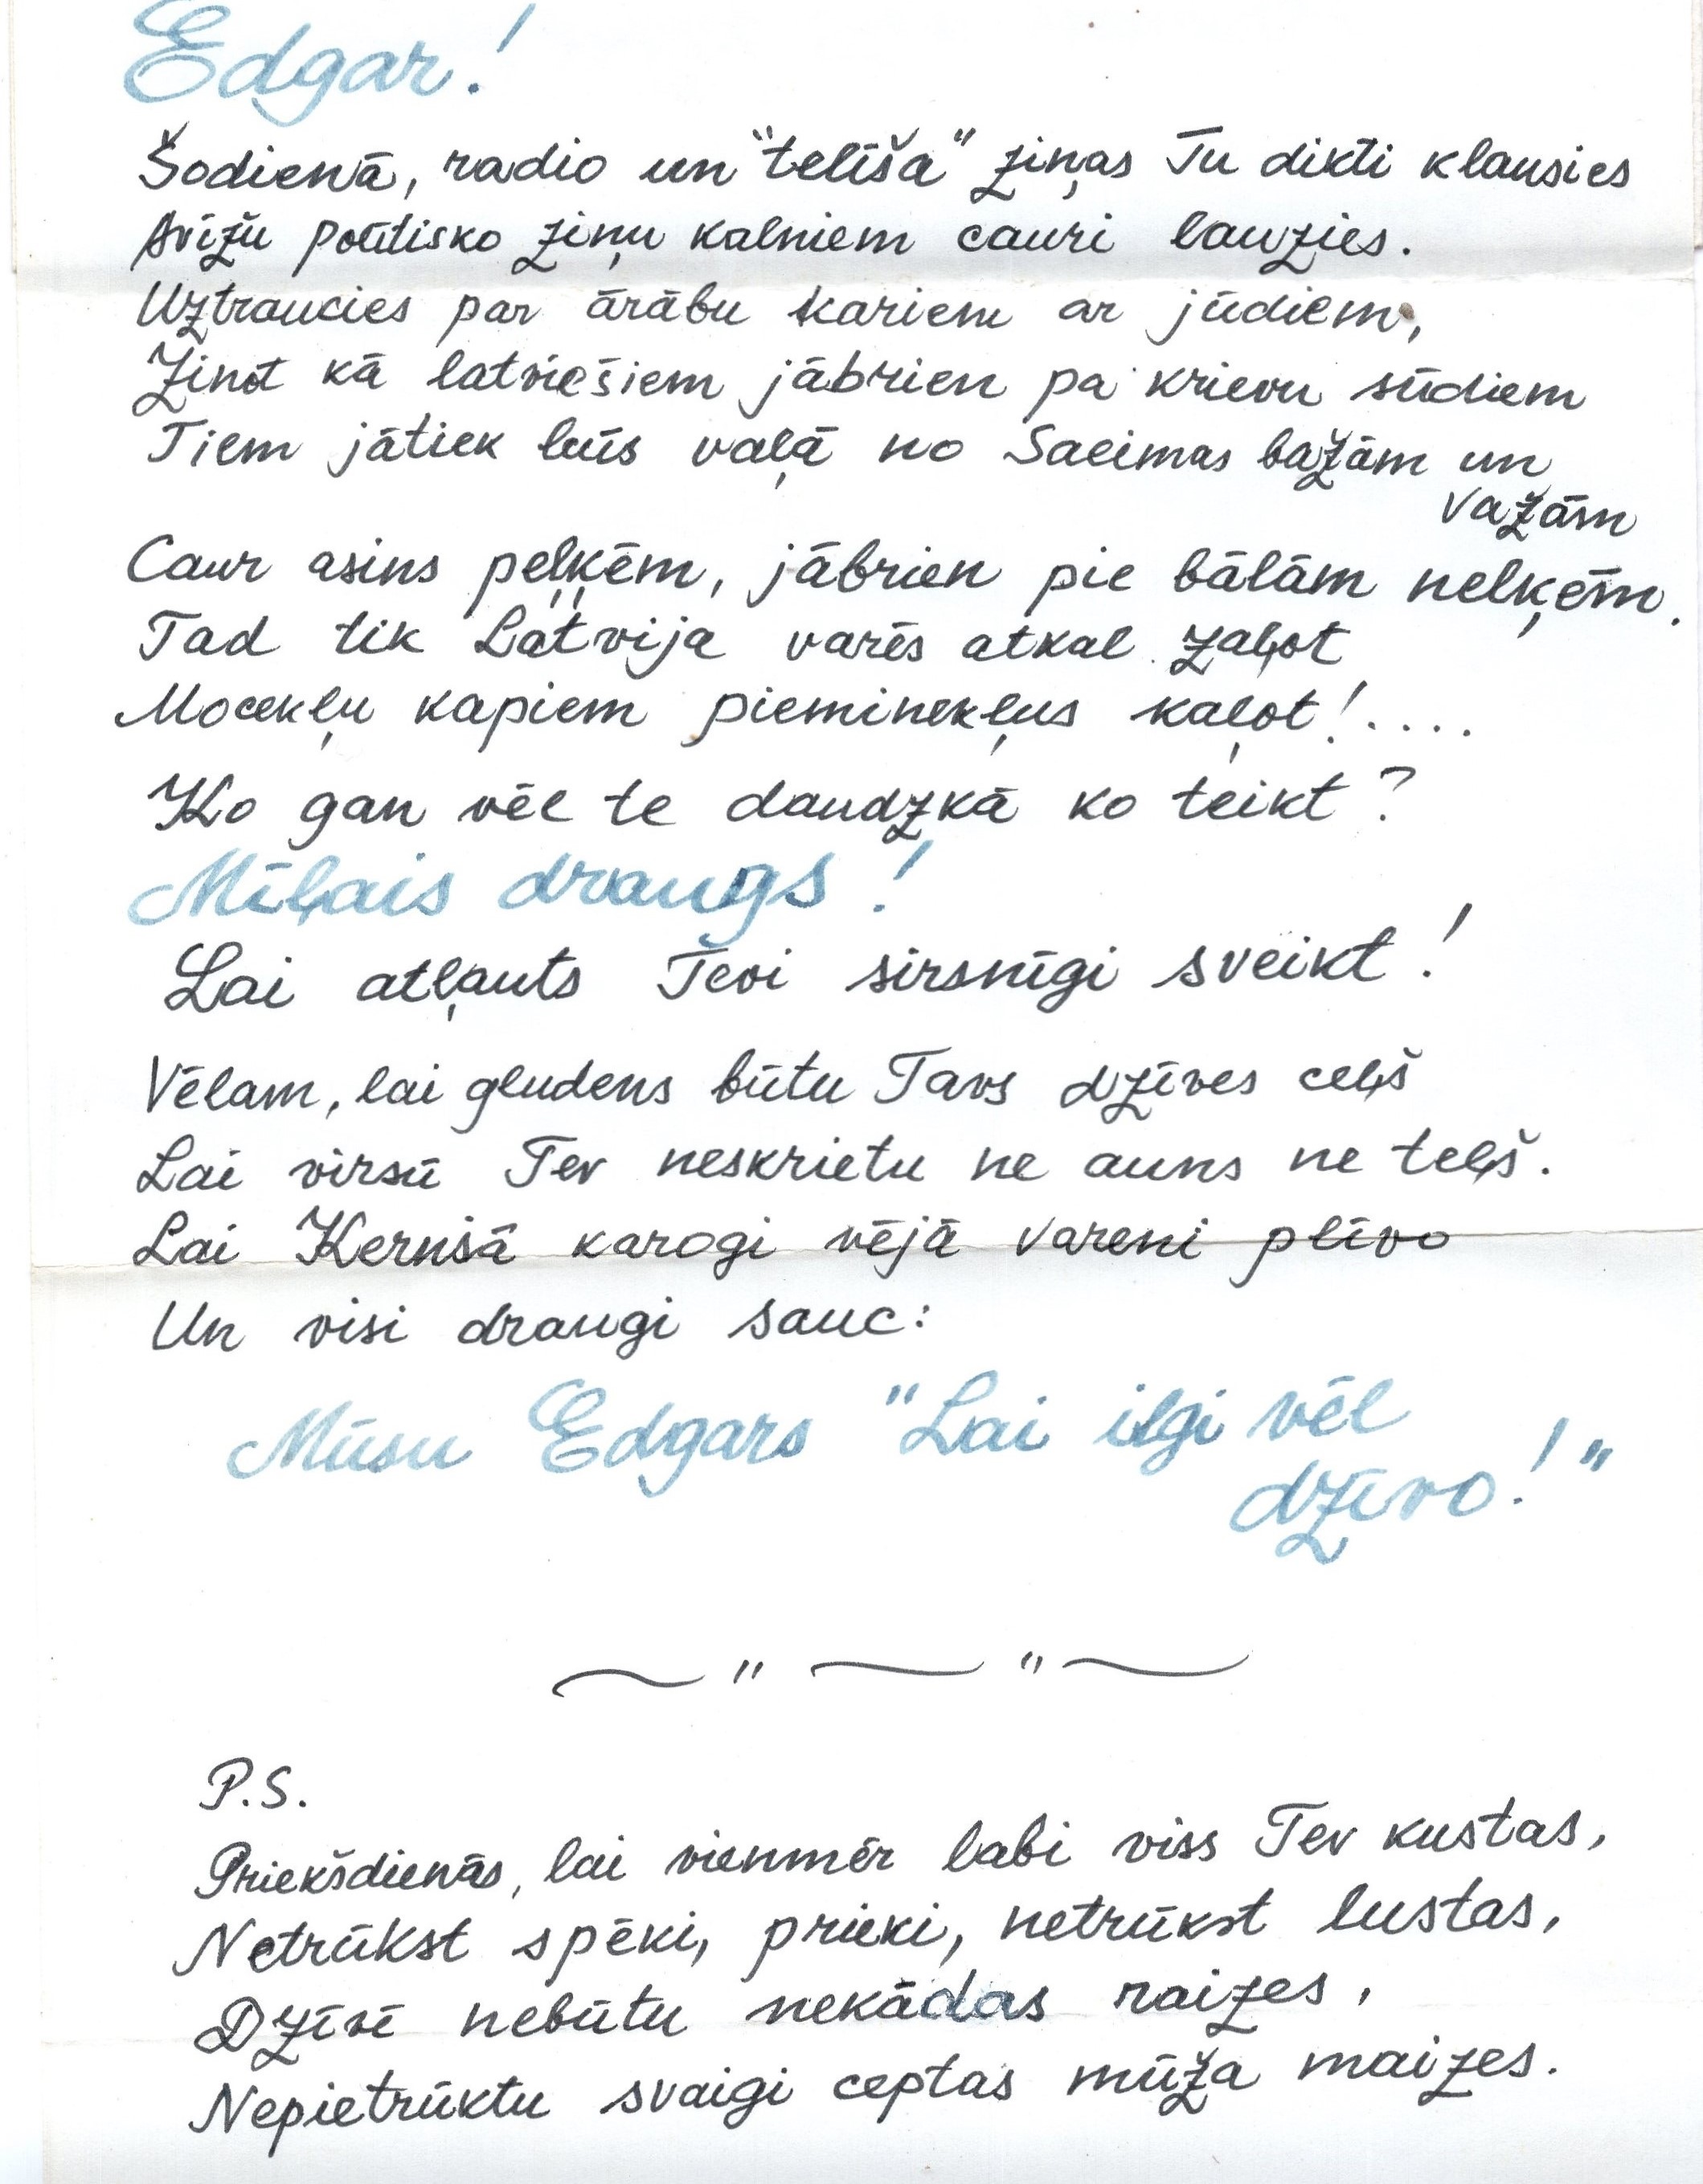 Edgar!
Šodienā, radio un "telīša" ziņas Tu dikti klausies
Avīžu polītisko ziņu kalniem cauri lauzies.
Uztraucies par ārābu kariem ar jūdiem,
Zinot kā latviešiem jābrien pa krievu sūdiem
Tiem jātiek būs vaļā no Saeimas bažām un
važām
Caur asins peļķēm, jābrien pie bālām nelķēm.
Tad tik Latvija varēs atkal zaļot
Mocekļu kapiem piemineķļus kaļot!....
Ko gan vēl te daudzkā ko teikt?
Mīļais draugs!
Lai atļauts Tevi sirsnīgi sveikt!
Vēlam, lai gludens būtu Tavs dzīves ceļš
Lai virsū Tev neskrietu ne auns ne teļš.
Lai Kernsā karogi vējā vareni plīvo
Un visi draugi sauc:
Mūsu Edgars "Lai ilgi vēl
dzīvo!"
~ " ~ " ~
P.S.
Priekšdienās, lai vienmēr labi viss Tev kustas,
Netrūkst spēki, prieki, netrūkst lustas,
Dzīvē nebūtu nekādas raizes,
Nepietrūktu svaigi ceptas mūža maizes.